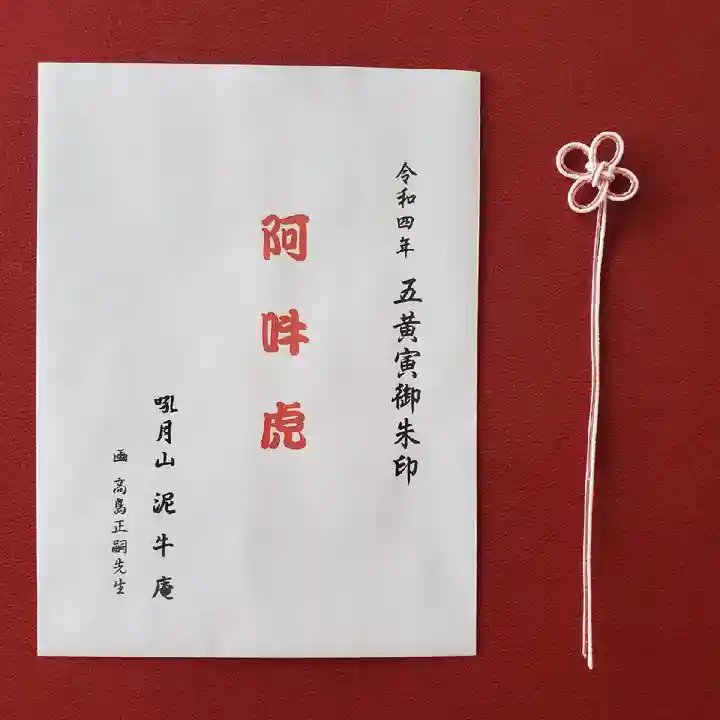 令和四年 五黄寅御朱印
阿吽虎
吼月山 泥牛庵
画 高島正嗣先生